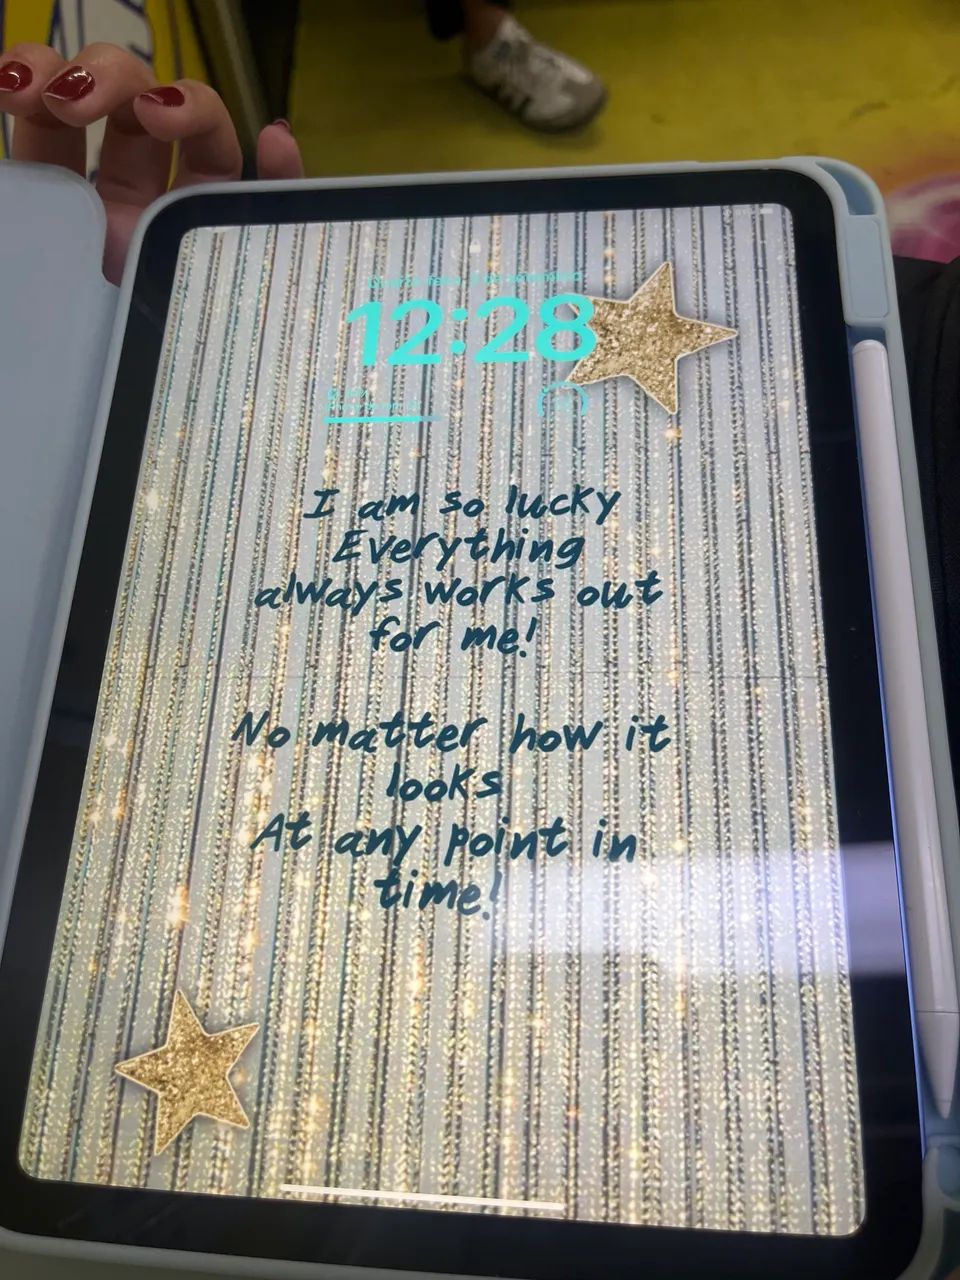 12:28
I am so lucky
Everything
always works out
for me!
No matter how it
looks
At any point in
time!